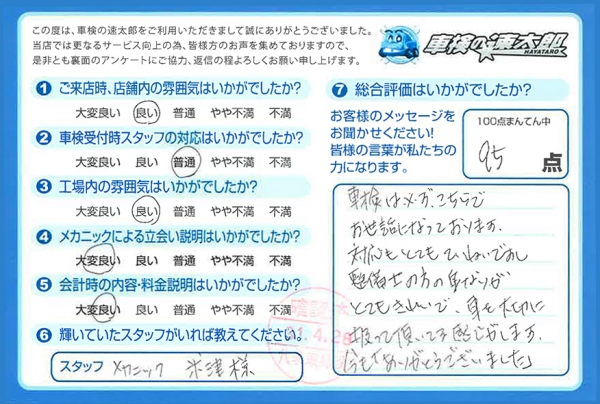 この度は、車検の速太郎をご利用いただきまして誠にありがとうございました。
当店では更なるサービス向上の為、皆様方のお声を集めておりますので、
是非とも裏面のアンケートにご協力、返信の程よろしくお願い申し上げます。
車検の速太郎
HAYATARO
1 ご来店時、店舗内の雰囲気はいかがでしたか?
大変良い 良い 普通 やや不満 不満
2 車検受付時スタッフの対応はいかがでしたか?
大変良い 良い 普通 やや不満 不満
3 工場内の雰囲気はいかがでしたか?
大変良い 良い 普通 やや不満 不満
4 メカニックによる立会い説明はいかがでしたか?
大変良い 良い 普通 やや不満 不満
5 会計時の内容・料金説明はいかがでしたか?
大変良い 良い 普通 やや不満 不満
6 輝いていたスタッフがいれば教えてください。
スタッフ メカニック 米津様
7 総合評価はいかがでしたか?
お客様のメッセージを
お聞かせください!
皆様の言葉が私たちの
力になります。
100点まんてん中
95 点
車検は必ずこちらで
お世話になっております。
対応もとてもていねいですし
整備士の方の身なりが
とてもきれいで、車も大切に
扱って頂いてる感じがします。
ありがとうございました
4.28